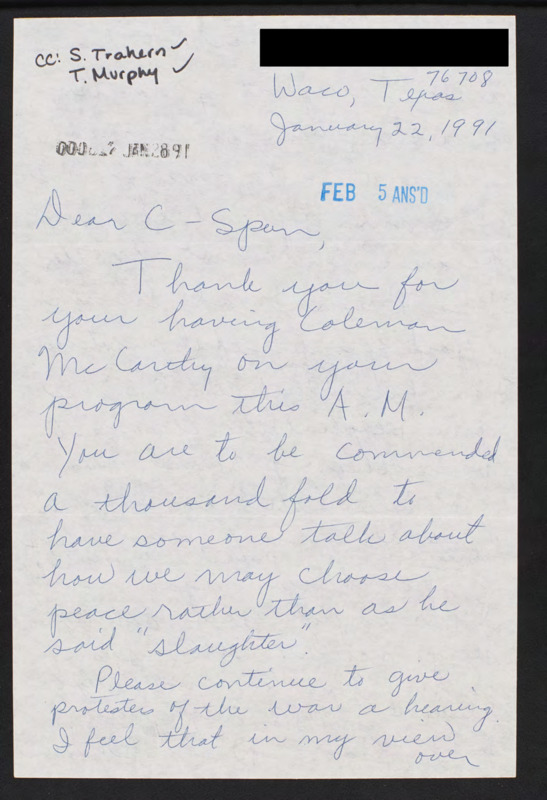 CC: S. Trahern ✓
T. Murphy ✓
Waco, Texas 76708
January 22, 1991
JAN 28 91
FEB 5 ANS'D
Dear C-Span,
Thank you for
your having Coleman
McCarthy on your
program this A.M.
You are to be commended
a thousand fold to
have someone talk about
how we may choose
peace rather than as he
said "slaughter".
Please continue to give
protesters of the war a hearing.
I feel that in my view
over